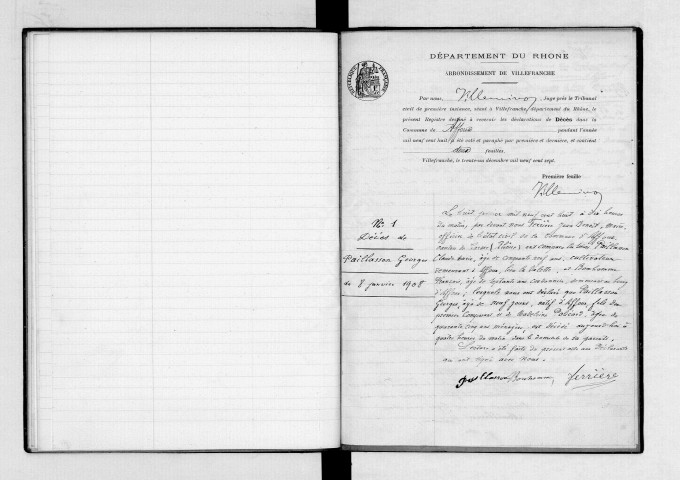 DÉPARTEMENT DU RHONE
ARRONDISSEMENT DE VILLEFRANCHE
Par nous, Villeminoz, Juge près le Tribunal
civil de première instance, séant à Villefranche, département du Rhône, le
présent Registre destiné à recevoir les déclarations de Décès dans la
Commune de Affoux pendant l'année
mil neuf cent huit a été coté et paraphé par première et dernière, et contient
deux feuillets.
Villefranche, le trente-un décembre mil neuf cent sept.
Première feuille
Villeminoz
N° 1
Décès de
Paillasson Georges
du 8 janvier 1908
Le huit janvier mil neuf cent huit à dix heures
du matin, par devant nous Ferrière Jean Benoit, maire,
officier de l'état civil de la commune d'Affoux,
canton de Tarare (Rhône) ont comparu Paillasson
Claude Marie, âgé de cinquante neuf ans, cultivateur
demeurant à Affoux, lieu de, et Bonhomme
François, âgé de soixante ans, demeurant au bourg
d'Affoux; lesquels nous ont déclaré que Paillasson
Georges, âgé de neuf jours, natif d'Affoux, fils du
premier comparant et de Madeleine, âgée de
quarante cinq ans ménagère, est décédé aujourd'hui à
quatre heures du matin dans le domicile de ses parents.
Lecture a été faite du présent acte aux déclarants
qui ont signé avec nous.
Paillasson Bonhomme Ferrière